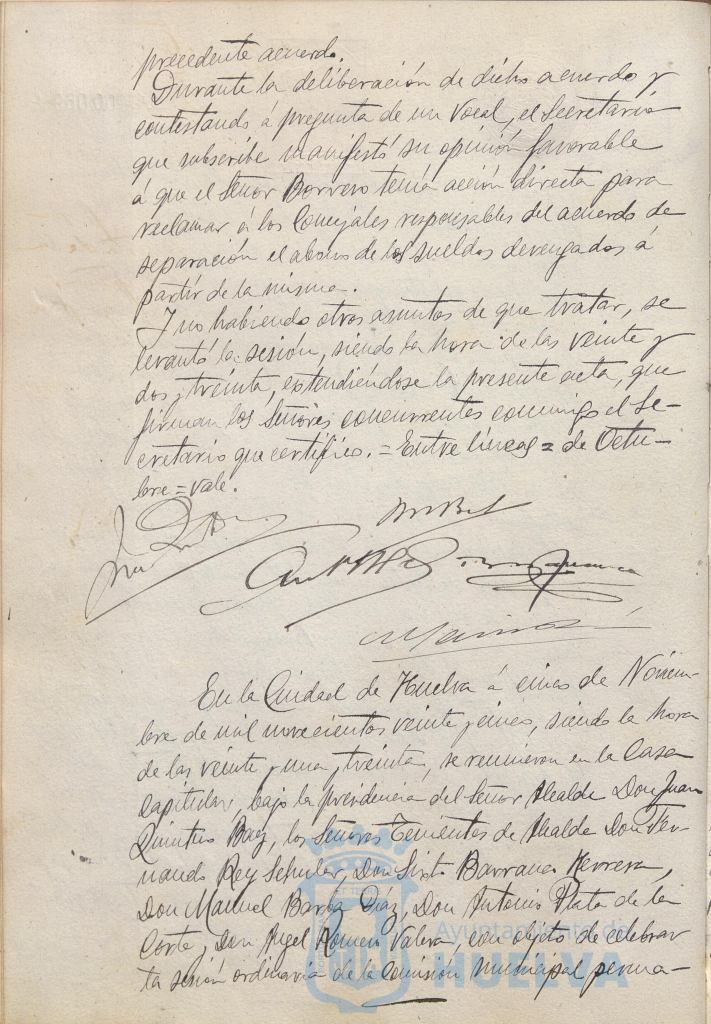 precedente acuerdo.
Durante la deliberación de dicho acuerdo y
contestando á pregunta de un Vocal, el Secretario
que subscribe manifestó su opinión favorable
á que el Señor Borrero tenía acción directa para
reclamar á los Concejales responsables del acuerdo de
separación el abono de los sueldos devengados á
partir de la misma.
Y no habiendo otros asuntos de que tratar, se
levantó la sesión, siendo la hora de las veinte y
dos y treinta, extendiéndose la presente acta, que
firman los Señores concurrentes conmigo el Se-
cretario que certifico. = Entre líneas = de Octu-
bre = vale.
En la Ciudad de Huelva á cinco de Noviem-
bre de mil novecientos veinte y cinco, siendo la hora
de las veinte y una y treinta, se reunieron en la Casa
Capitular, bajo la presidencia del Señor Alcalde Don Juan
Quintero Baez, los Señores Tenientes de Alcalde Don Fer-
nando Rey Schuler, Don Sixto Barranco Herrera,
Don Manuel Barba Díaz, Don Antonio Plata de la
Corte, Don Angel Romero Valera, con objeto de celebrar
la sesión ordinaria de la Comisión Municipal perma-
Ayuntamiento de
HUELVA